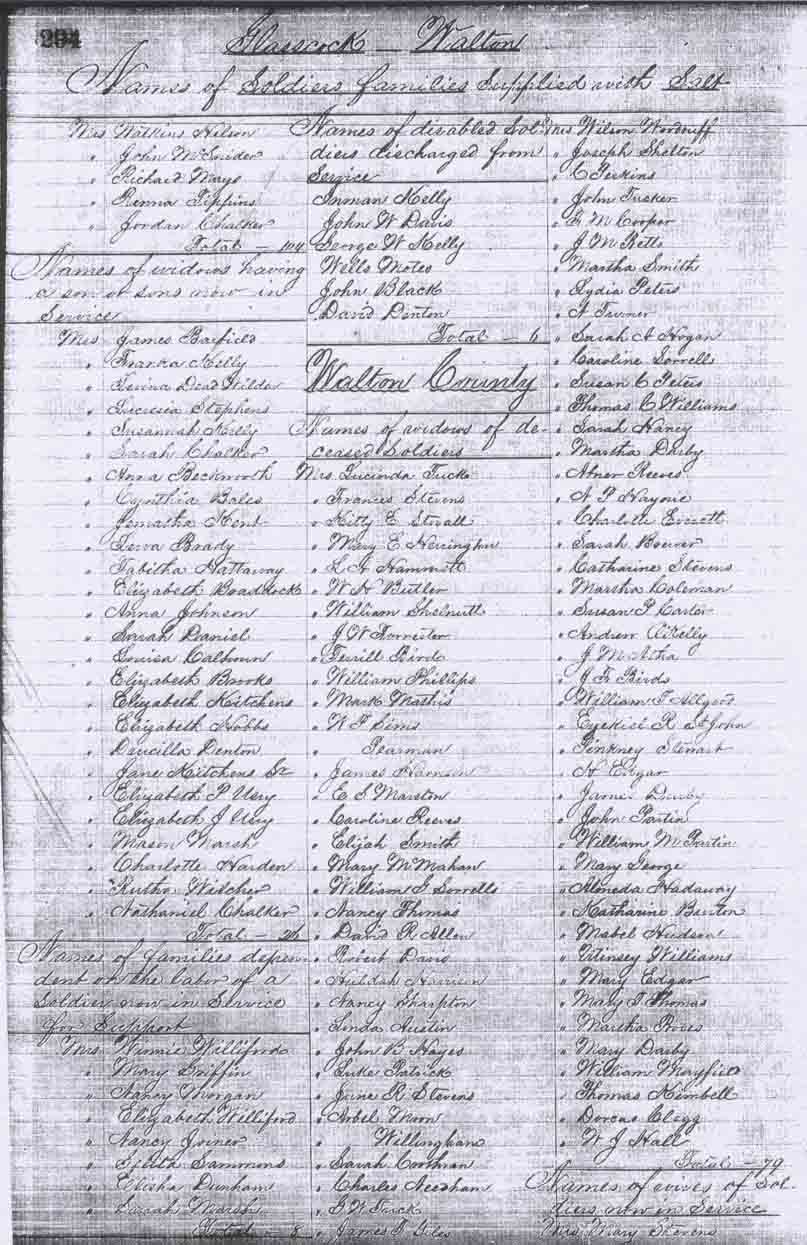 294
Glasscock — Walton
Names of Soldiers families Supplied with Salt
Mrs Watkins Wilson
" John McSnider
" Richard Mays
" Renna Tippins
" Jordan Chalker
Total — 104
Names of widows having
a son or sons now in
Service
Mrs James Barfield
" Franka Kelly
" Teresa
" Lucresia Stephens
" Susannah Kelly
" Sarah Chalker
" Anna Beckworth
" Cynthia Bales
" Jemasha Kent
" Brady
" Tabitha Hattaway
" Elizabeth Braddock
" Anna Johnson
" Sarah Daniel
" Louisa Calhoun
" Elizabeth Brooks
" Elizabeth Kitchens
" Elizabeth Hobbs
" Drucilla Denton
" Jane Kitchens Sr
" Elizabeth P Usry
" Elizabeth J Usry
" Mason Marsh
" Charlotte Harden
" Rutha Wilcher
" Nathaniel Chalker
Total — 26
Names of families depen-
dent on the labor of a
Soldier now in Service
for Support
Mrs Winnie Williford
" Mary Griffin
" Nancy Morgan
" Elizabeth Williford
" Nancy Joiner
" Edith Sammons
" Elisha Dunham
" Sarah Marsh
Total — 8
Names of disabled Sol-
diers discharged from
Service
Inman Kelly
John W Davis
George W Kelly
Wells Motes
John Black
David Denton
Total — 6
Walton County
Names of widows of de-
ceased Soldiers
Mrs Lucinda Tuck
" Frances Stevens
" Kitty E Stovall
" Mary E Herringdon
" L A Hammett
" W A Butler
" William Shelnutt
" J W Forrester
" Terrill Bird
" William Phillips
" Mark Mathis
" W P Sims
" Pearman
" James
" E S Marston
" Caroline Reeves
" Elijah Smith
" Mary McMahan
" William G Sorrells
" Nancy Thomas
" David R Allen
" Robert Davis
" Huldah Harrison
" Nancy Sharpton
" Linda Austin
" John B Hayes
" Luke Patrick
" Jane R Stevens
" Arbel Moon
" Willingham
" Sarah Cochran
" Charles Needham
" G W Tuck
" James T Giles
Mrs Wilson Woodruff
" Joseph Shelton
" C Perkins
" John Tucker
" F M Cooper
" J M Betts
" Martha Smith
" Lydia Peters
" A Turner
" Sarah A Hogan
" Caroline Sorrells
" Susan C Peters
" Thomas C Williams
" Sarah Haney
" Martha Darby
" Abner Reeves
" A P Haynie
" Charlotte Everett
" Sarah Bouver
" Catharine Stevens
" Martha Coleman
" Susan P Carter
" Andrew
" J M Atha
" J F Birds
" William T Allgood
" Ezekiel R St John
" Pinkney Stewart
" H Edgar
" James Darby
" John Partin
" William M Partin
" Mary George
" Almeda Hadaway
" Katharine Benton
" Mabel Hudson
" Utinsey Williams
" Mary Edgar
" Mary T Thomas
" Martha
" Mary Darby
" William Mayfield
" Thomas Kimbell
" Dorcas Clegg
" W J Hall
Total — 79
Names of wives of Sol-
diers now in Service
Mrs Mary Stevens